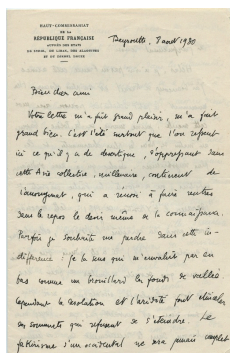 HAUT-COMMISSARIAT
DE LA
RÉPUBLIQUE FRANÇAISE
AUPRÈS DES ÉTATS
DE SYRIE, DU LIBAN, DES ALAOUITES
ET DU DJEBEL DRUZE
Beyrouth, 8 août 1930
Bien cher ami
Votre lettre m'a fait grand plaisir, m'a fait
grand bien. C'est l'été surtout que l'on ressent
ici ce qu'il y a de desertique, s'opposant dans
cette Asie collective, millénaire, continent de
l'anonymat, qui a réussi à faire rentrer
dans le repos le désir même de la connaissance.
Parfois je souhaite me perdre dans cette in-
différence : je la sens qui m'envahit par en
bas comme un brouillard en fonds de vallée
cependant la désolation et l'aridité font
ses sommets qui refusent de s'éteindre. Le
fatalisme d'un occidental ne sera jamais complet